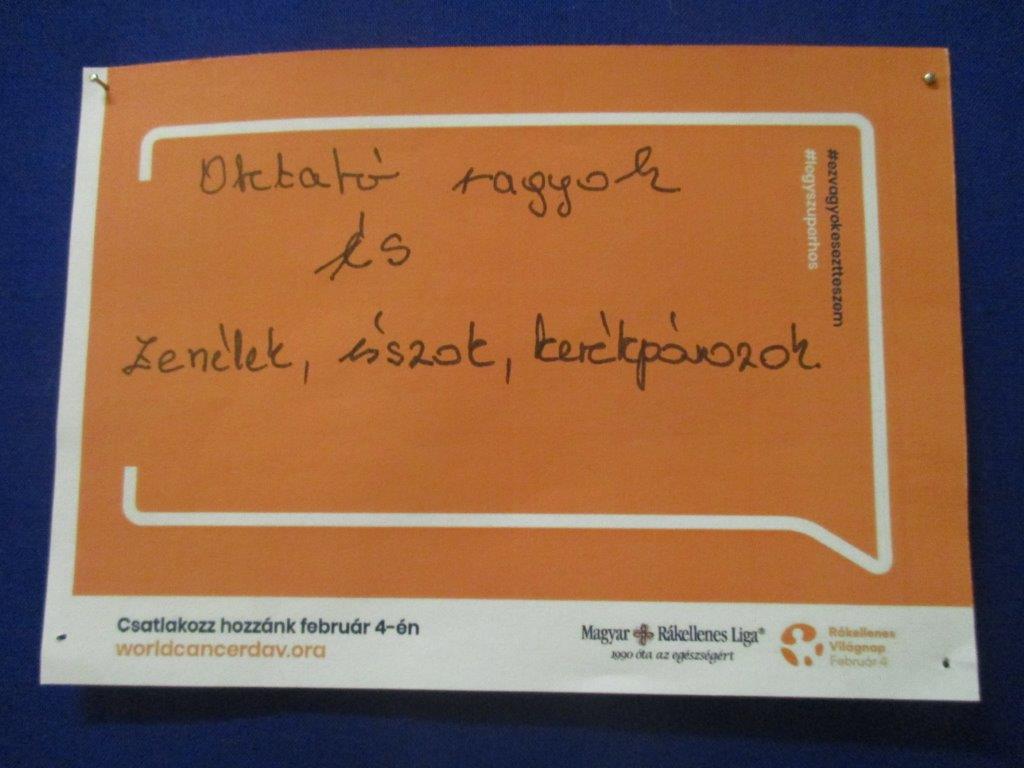 Oktató vagyok
és
Zenélek, úszok, kerékpározok.
#ezvagyokeseztteszem
#legyszuperhos
Csatlakozz hozzánk február 4-én
worldcancerday.org
Magyar Rákellenes Liga®
1990 óta az egészségért
Rákellenes
Világnap
Február 4